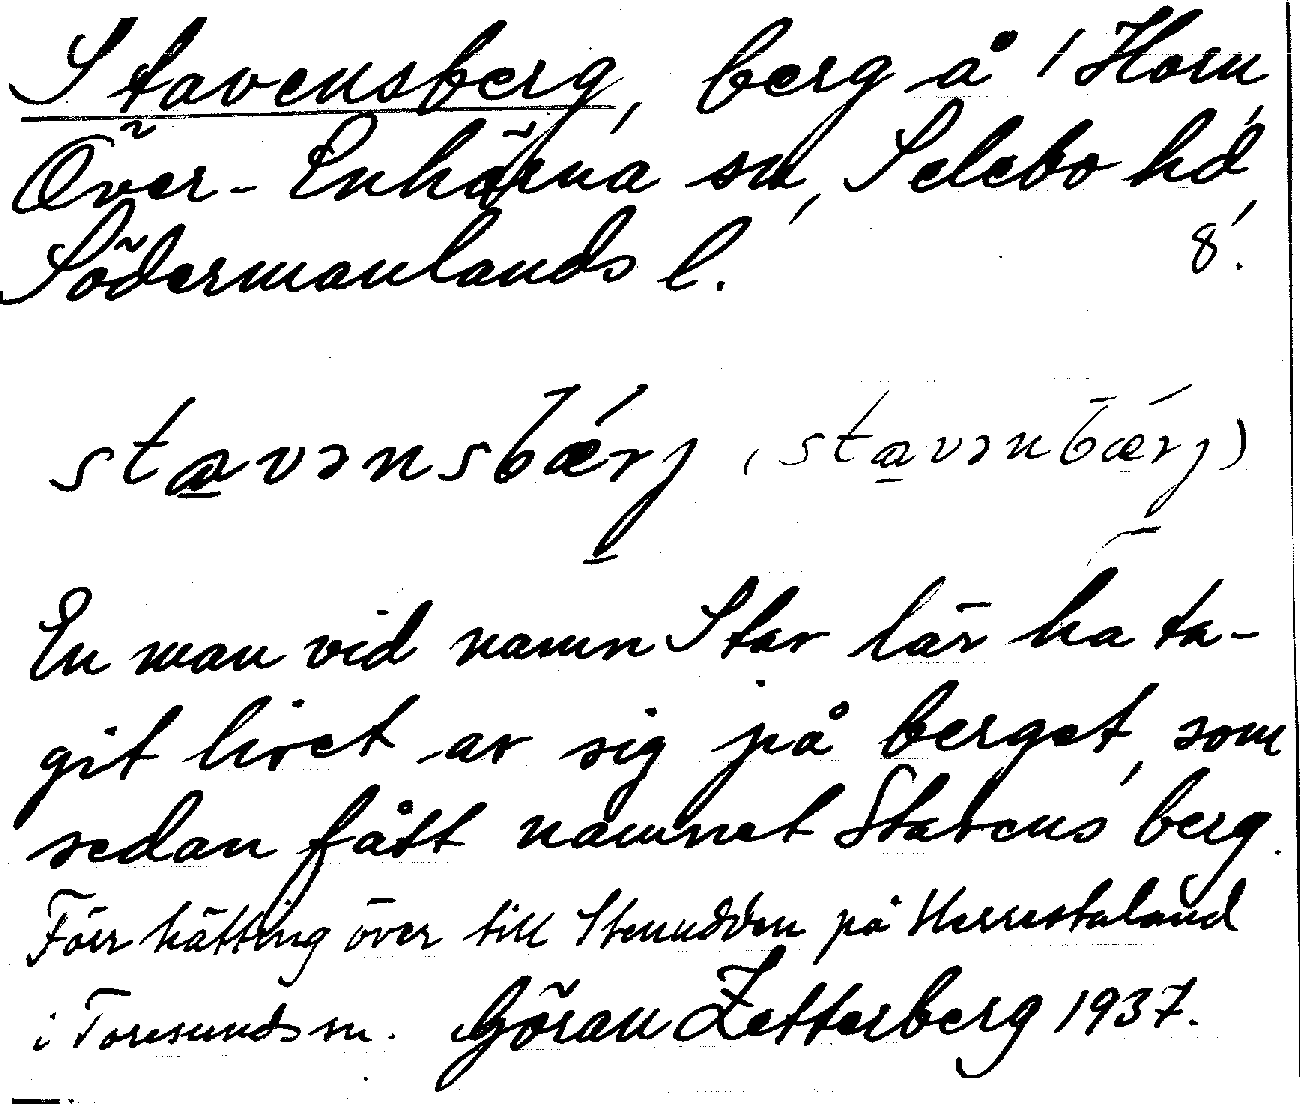 Stavensberg, berg å / Horn,
Över-Enhörna sn, Selebo hd,
Södermanlands l. 8.
stavənsbærj (stavənbærj)
En man vid namn Stav lär ha ta-
git livet av sig på berget, som
sedan fått namnet Stavens berg.
Förr hätting över till Stenudden på Herrestaland
i Toresunds sn. Göran Zetterberg 1937.